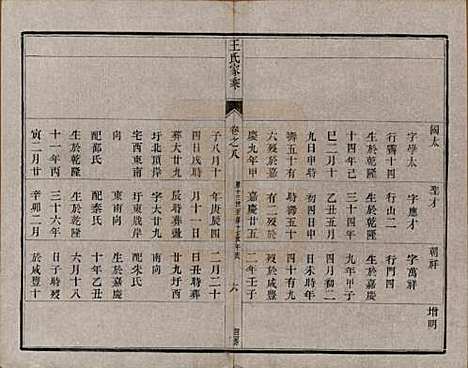 太 聖才 朝祥 增明
字學太 字應才 字萬祥
行霽十四 行山二 行門四
生於乾隆 生於乾隆 生於嘉慶
十四年己 三十四年 九年甲子
巳二月十 乙丑五月 十月初一
九日申時 初四日申 日未時
壽五十有 時壽五十 四十有九
六歿於嘉 有二歿於 歿於咸豐
慶九年甲 嘉慶十五 二年壬子
王氏家乘
卷之八
六
子八月十 年庚辰四 二月二十
四日戌時 月十一日 日丑時葬
葬大廿九 辰時葬大 廿九圩西
圩北頂岸 字大廿九 南向
宅西東南 圩東南向 配朱氏
向 東南向 生於嘉慶
配邵氏 配秦氏 十年乙丑
生於乾隆 生於乾隆 六月十八
十一年丙 三十六年 日子時歿
寅二月廿 辛卯二月 於咸豐十